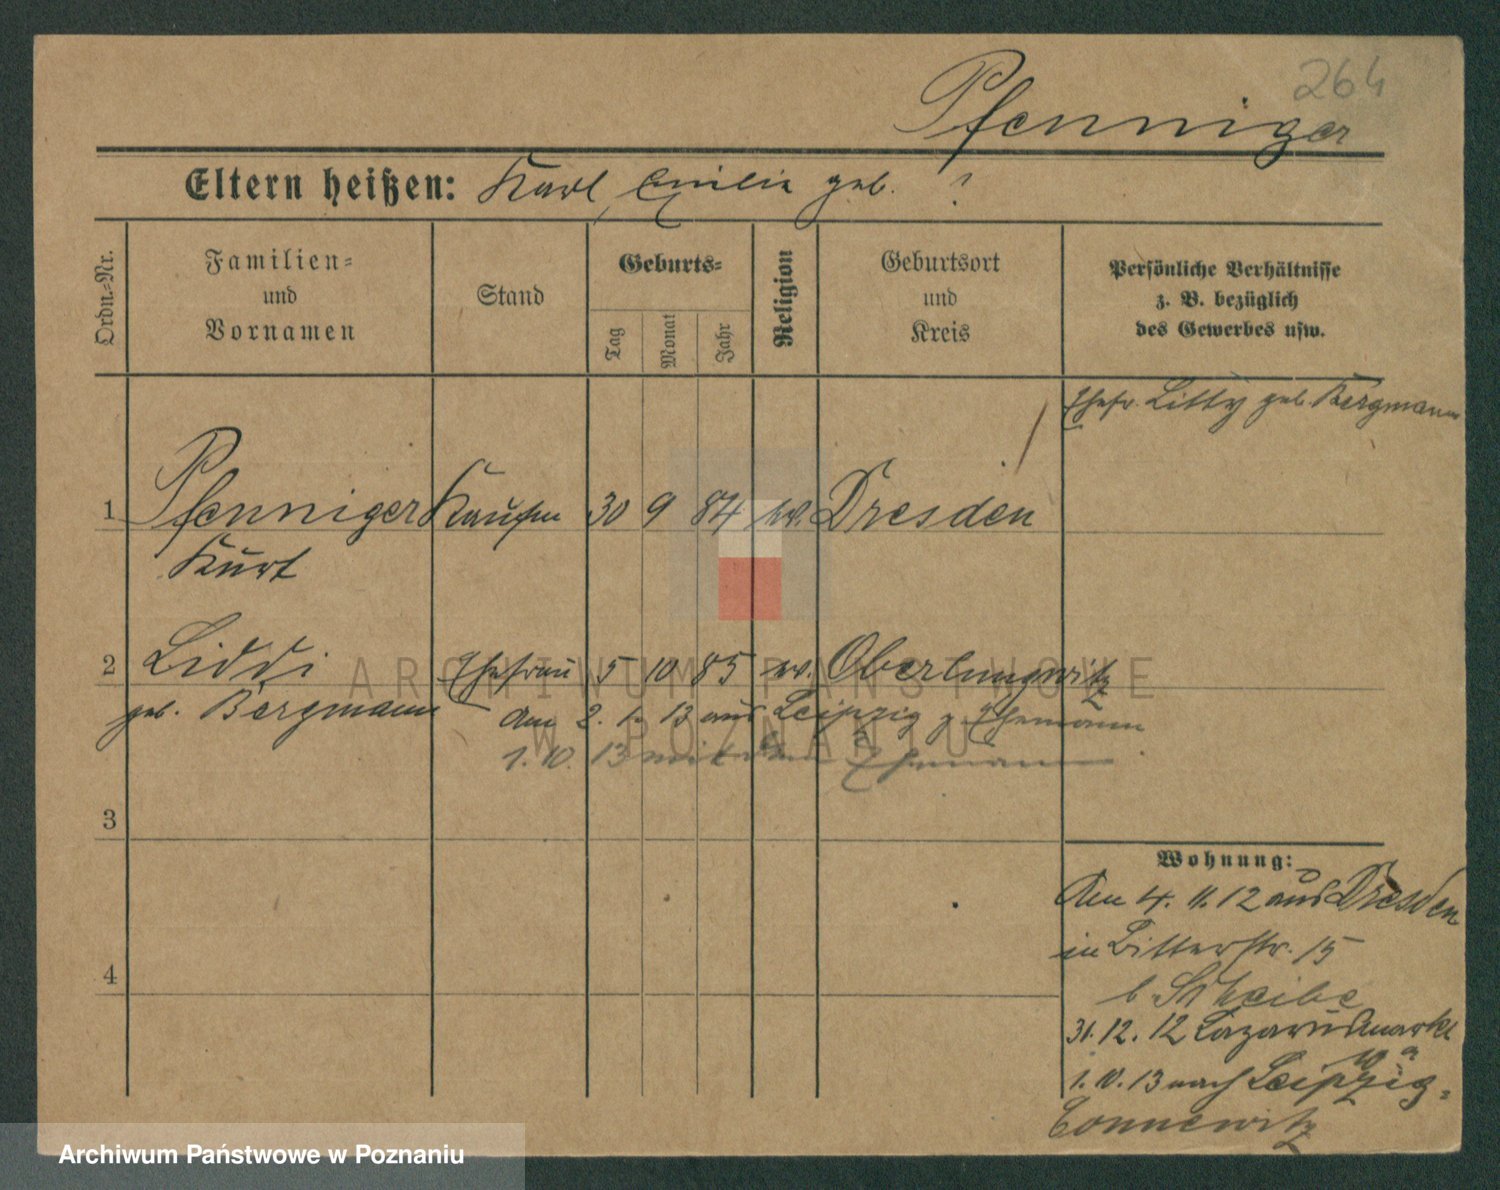 264
Pfenniger
Eltern heißen: Karl, Emilie geb. ?
Ordn.-Nr.
Familien-
und
Vornamen
Stand
Geburts-
Tag
Monat
Jahr
Religion
Geburtsort
und
Kreis
Persönliche Verhältnisse
z. B. bezüglich
des Gewerbes usw.
Ehefr. Litty geb. Bergmann
1 Pfenniger Kaufm 30 9 84 ev. Dresden
Kurt
2 Liddi Ehefrau 5 10 85 ev. Oberlungwitz
geb. Bergmann
am 2. 1. 13 aus Leipzig z. Ehemann
1. 10. 13 mit dem Ehemann
3
4
Wohnung:
Am 4. 11. 12 aus Dresden
in Bitterstr. 15
b. Scheibe
31. 12. 12 Lazarusmarkt
10 a
1. 10. 13 nach Leipzig-
Connewitz
ARCHIWUM PAŃSTWOWE
W POZNANIU
Archiwum Państwowe w Poznaniu